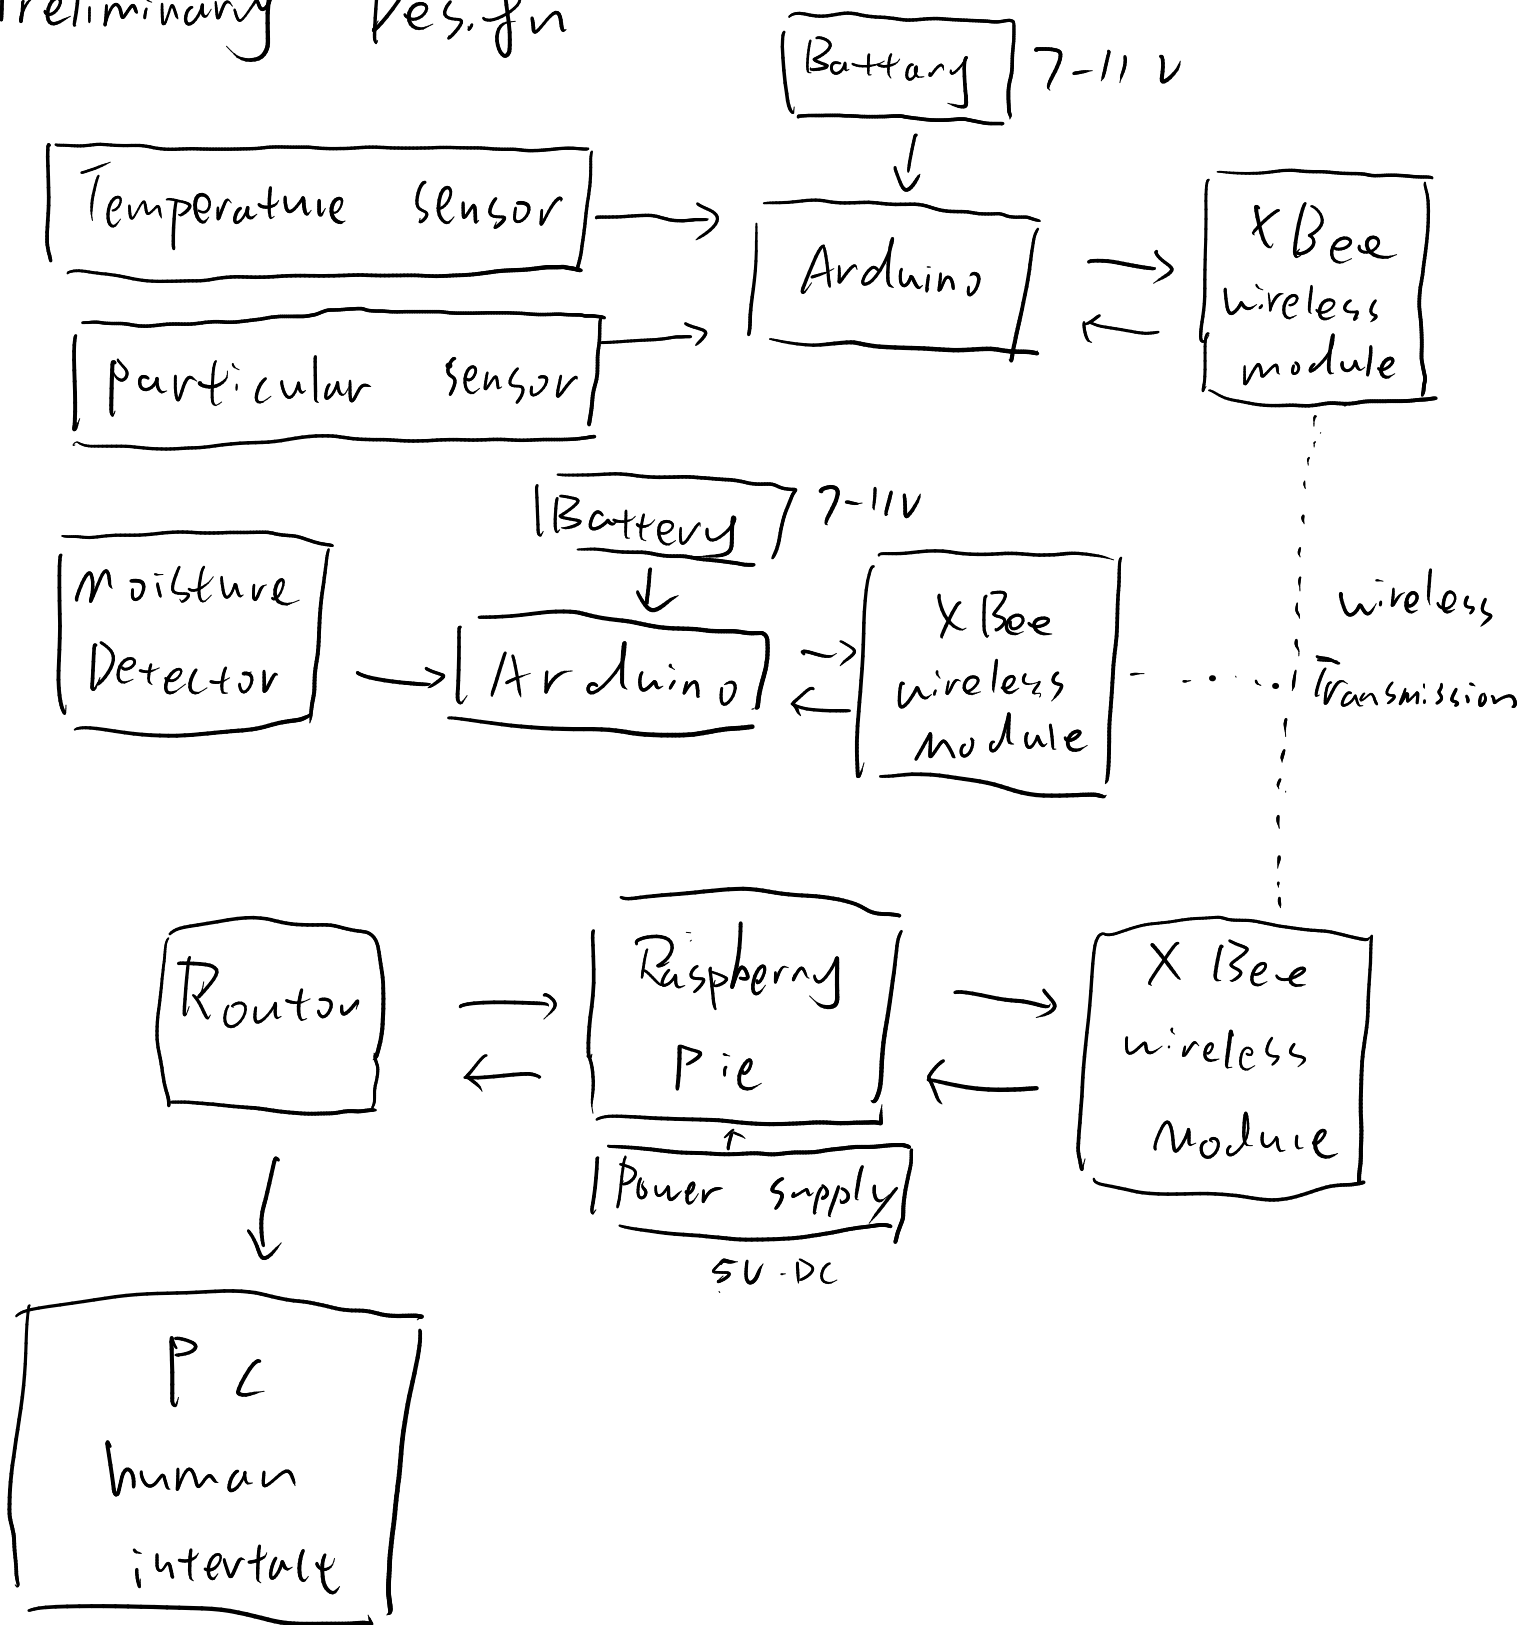 Preliminary Design
Battary 7-11 V
Temperature sensor
Arduino
XBee
wireless
module
particular sensor
Battery 7-11V
Moisture
Detector
Arduino
XBee
wireless
Module
wireless
Transmission
Routor
Raspberry
Pie
X Bee
wireless
Module
Power supply
5V-DC
PC
human
interface